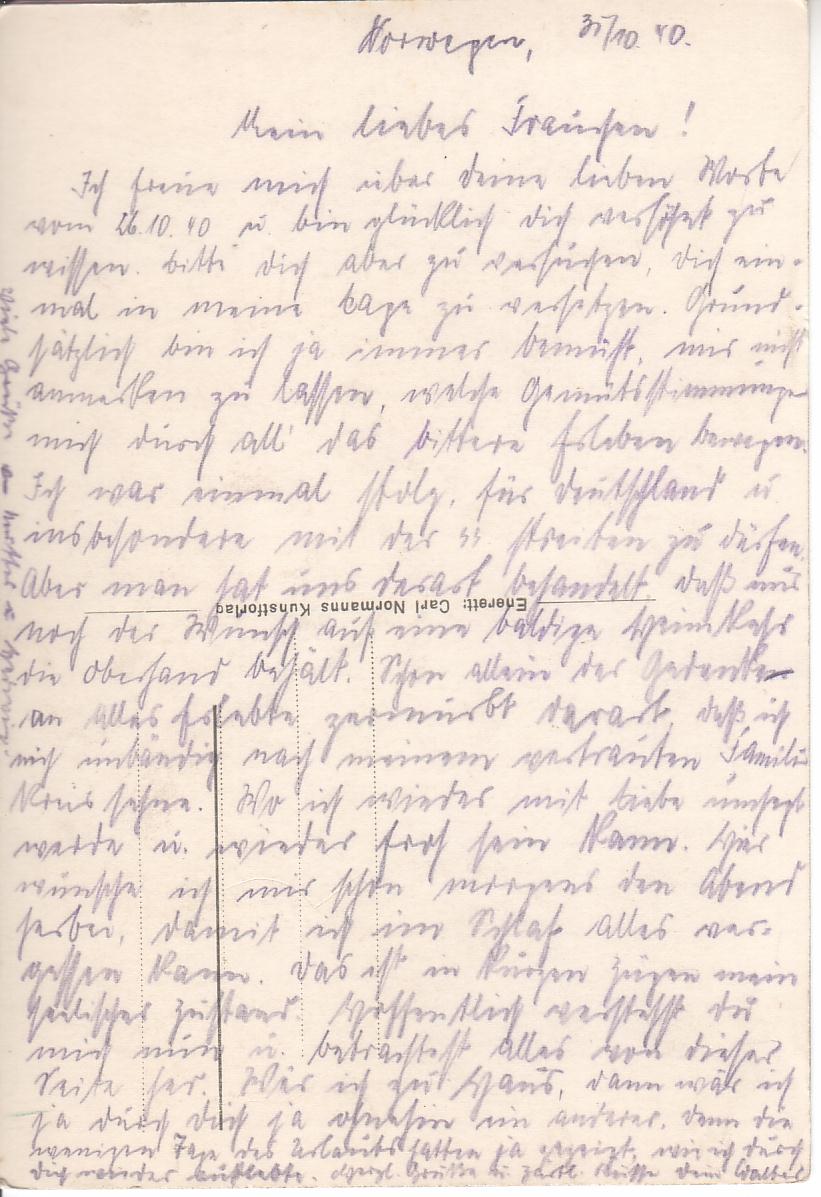 Norwegen, 31/10 40.
Mein liebes Frauchen!
Ich freue mich über deine lieben Worte
vom 26.10.40 u. bin glücklich dich versöhnt zu
wissen. bitte dich aber zu versuchen, dich ein-
mal in meine Lage zu versetzen. Grund-
sätzlich bin ich ja immer bemüht, mir nicht
anmerken zu lassen, welche Gemütsstimmungen
mich durch all' das bittere Erleben bewegen.
Ich war einmal stolz, für Deutschland u
insbesondere mit der SS streiten zu dürfen.
Aber man hat uns derart behandelt, daß nur
Enerett: Carl Normanns Kunstforlag
noch der Wunsch auf eine baldige Heimkehr
die Oberhand behält. Schon allein der Gedenken
an alles Erlebte zermürbt derart, daß ich
mich unbändig nach meinem vertrauten Familien
Kreis sehne. Wo ich wieder mit Liebe umhegt
werde u. wieder froh sein kann. Hier
wünsche ich mir schon morgens den Abend
herbei, damit ich im Schlaf alles ver-
gessen kann. Das ist in kurzen Zügen mein
seelischer Zustand. Hoffentlich verstehst du
mich nun u. betrachtest alles von dieser
Seite her. Wär ich zu Haus, dann wär ich
ja durch dich ja ohnehin ein anderer, denn die
wenigen Tage des Urlaubs hatten ja gezeigt, wie ich durch
dich wieder auflebte. Herzl. Grüße u zärtl. Küsse dein Walter
Viele Grüße an Mutter u